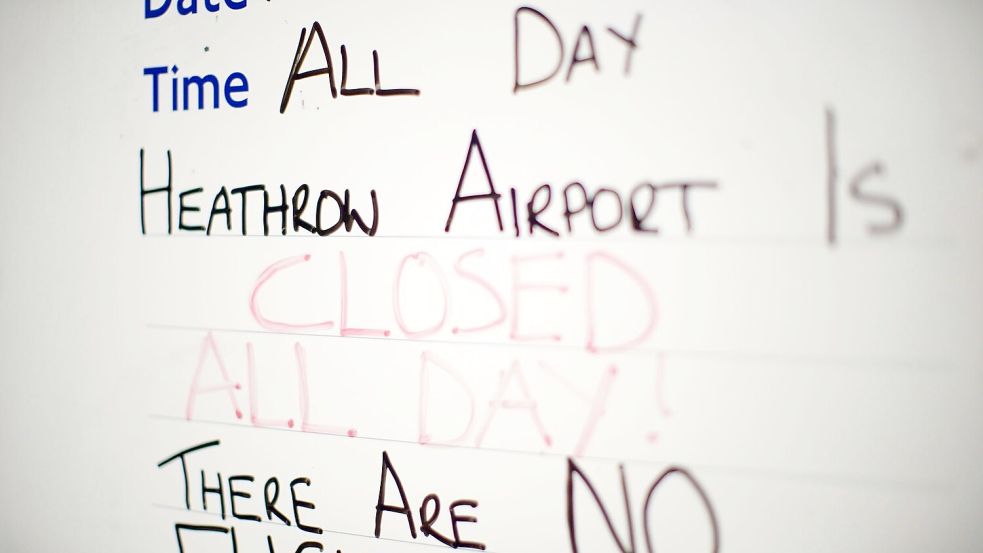 Date
Time ALL DAY
HEATHROW AIRPORT IS
CLOSED
ALL DAY!
THERE ARE NO